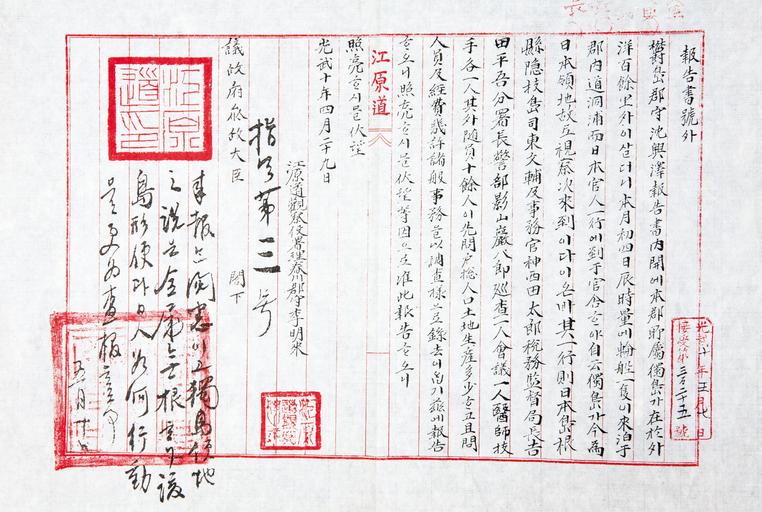 報告書號外
欝島郡守沈興澤報告書內開에本郡所屬獨島가在於外
洋百餘里外이살더니本月初四日辰時量에輪船一隻이來泊于
郡內道洞浦而日本官人一行에到于官舍ᄒᆞ야自云獨島가今爲
日本領地故로視察次來到이다이온바其一行則日本島根
縣隱技島司東文輔及事務官神西田太郞稅務監督局長吉
田平吾分署長警部影山巖八郞巡査一人會議一人醫師技
手各一人其外隨員十餘人이先問戶摠人口土地生産多少ᄒᆞ고且問
人員及經費幾許諸般事務을以調査樣으로錄去이ᄋᆞᆸ기玆에報告
ᄒᆞ오니照亮ᄒᆞ시믈伏望等因으로准此報告ᄒᆞ오니
照亮ᄒᆞ시믈伏望
江原道
光武十年四月二十九日
江原道觀察使署理春川郡守李明來
議政府參政大臣 閣下
指令第三号
來報는閱悉이고獨島領地
之說은全屬無根ᄒᆞ나該
島形便과日人如何行動
을更爲査報할事
五月廿日
江原道印
光武十年五月七日
接受第三百二十五號